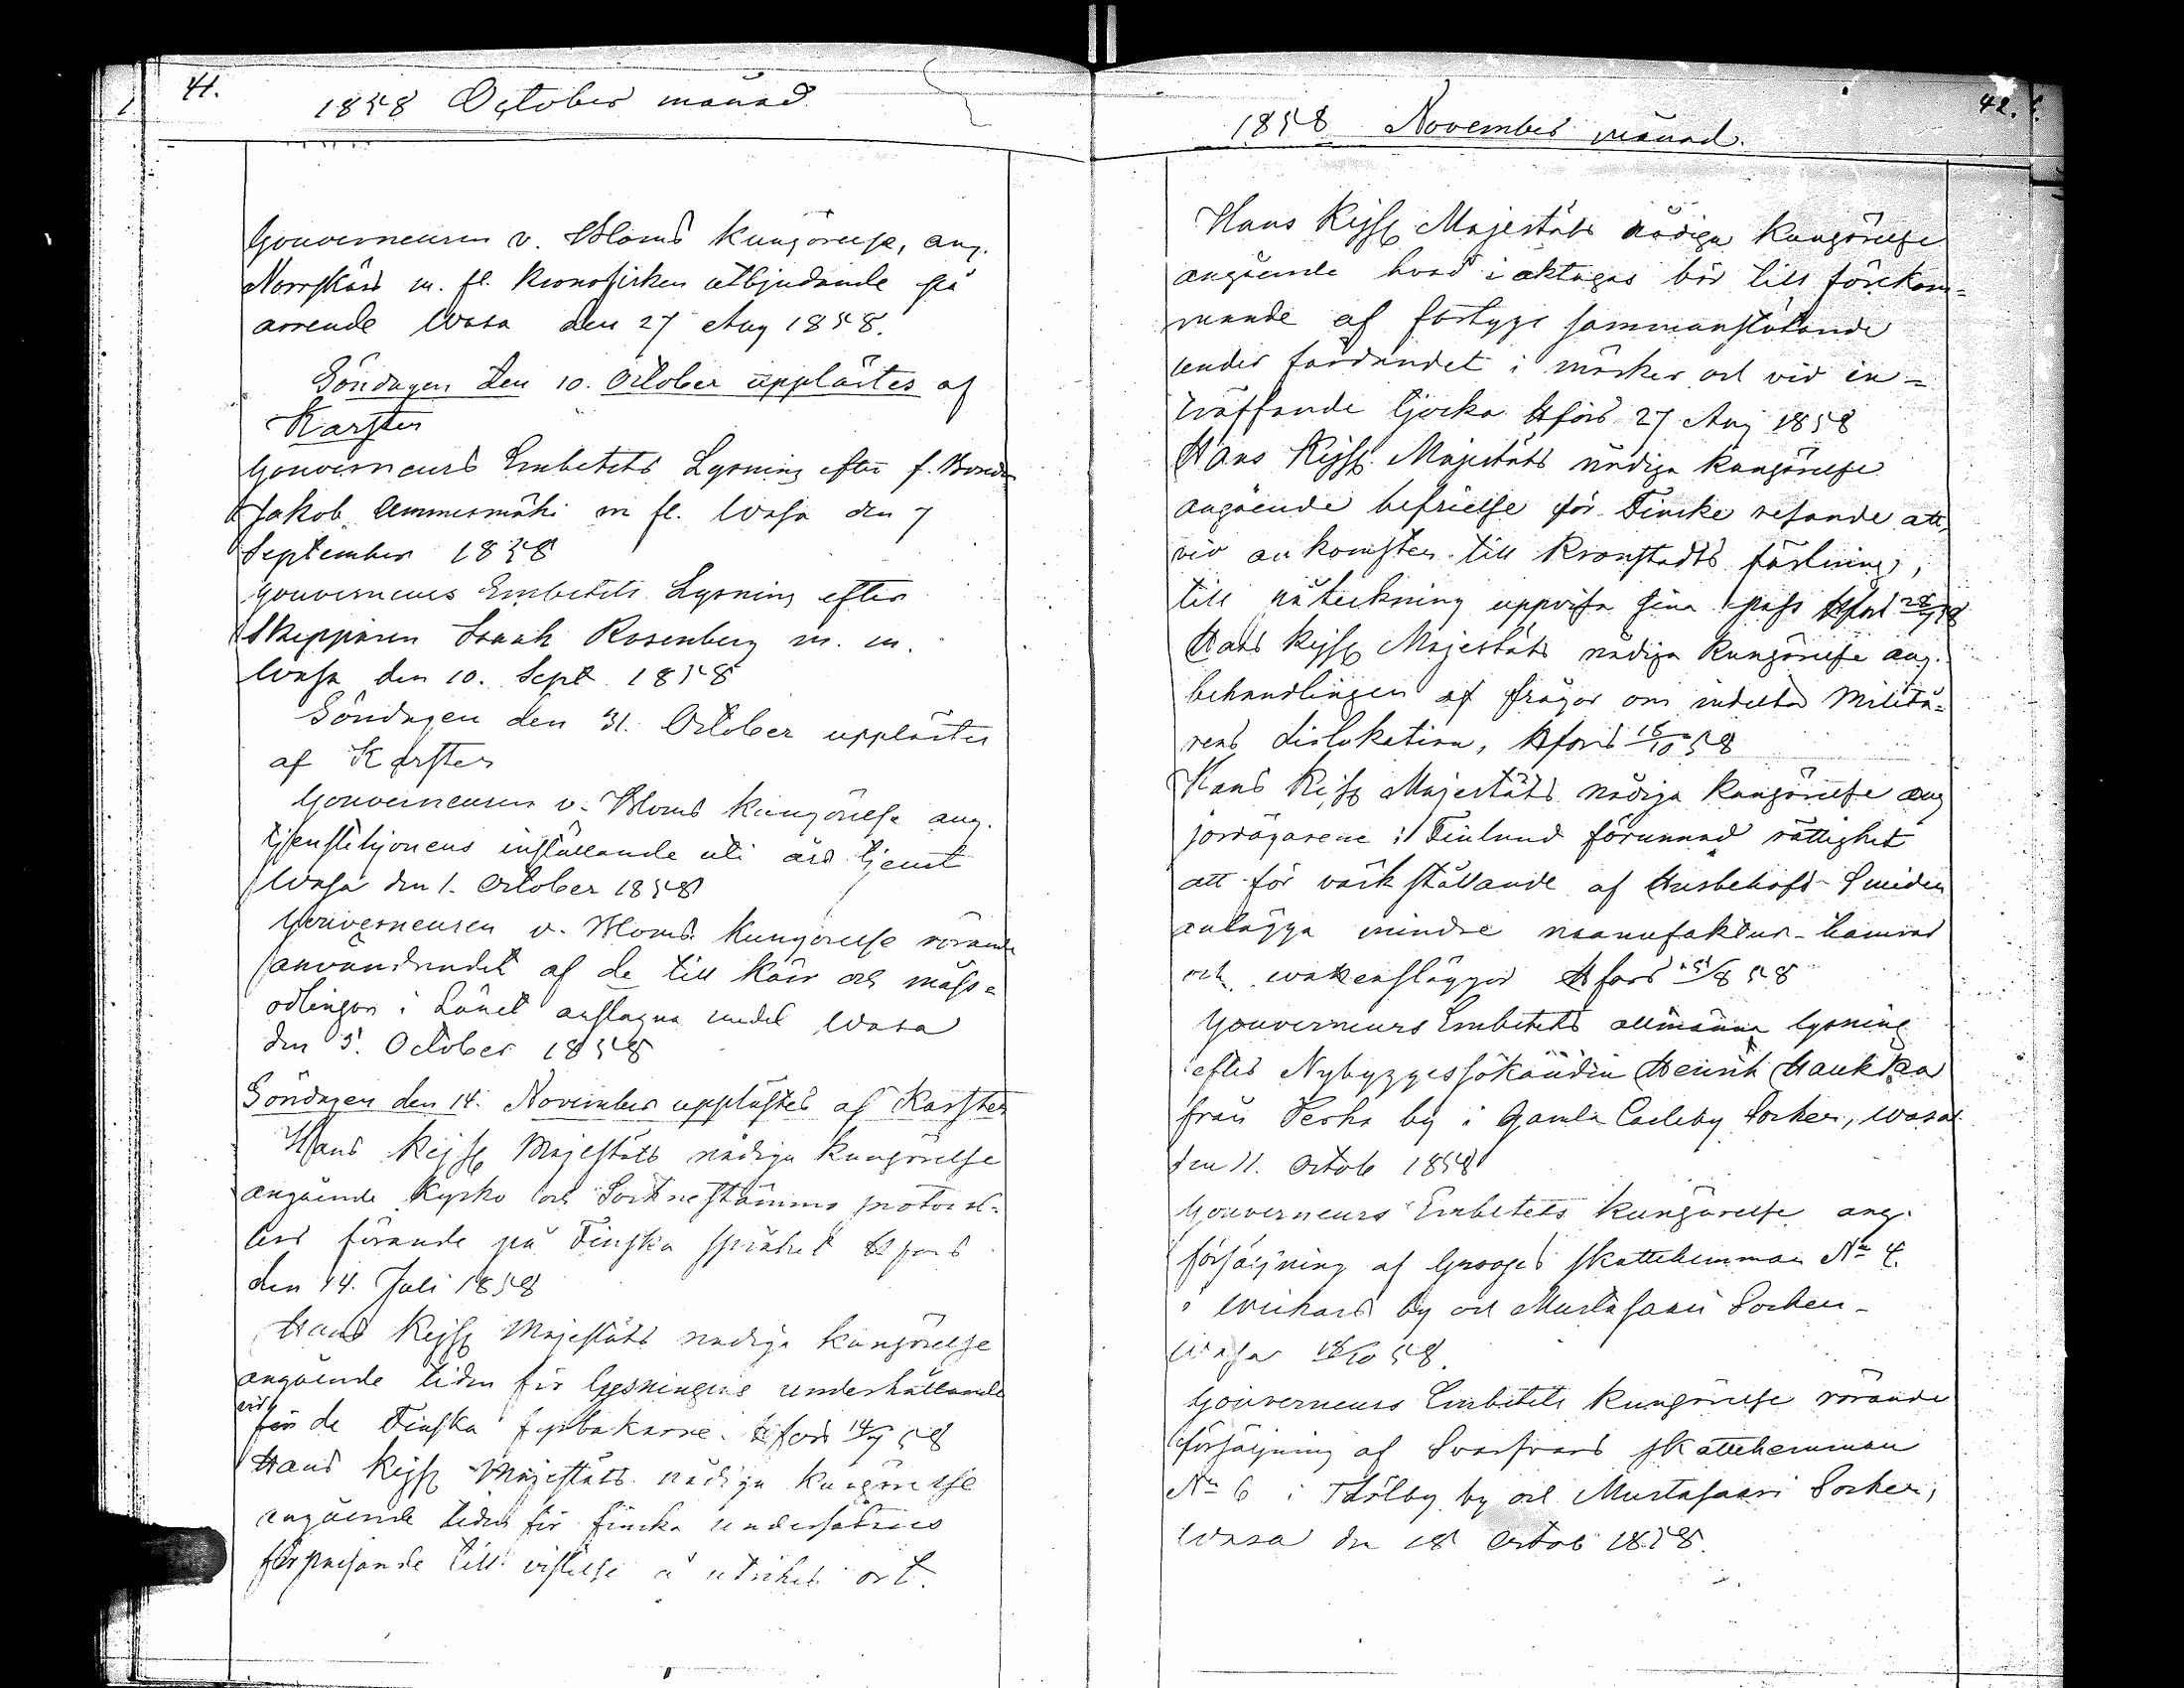 41.
1858 October månad
Gouverneuren v. Bloms kungörelse, ang.
Norrskärs m. fl. kronofisken utbjudande på
arrende Wasa den 27 Aug 1858.
Söndagen den 10. October upplästes af
Karsten
Gouverneurs Embetets Lysning efter f. Bonden
Jakob Ammesmäki m fl. Wasa den 7
September 1858
Gouverneurs Embetets Lysning efter
Skepparen Isaak Rosenberg m. m.
Wasa den 10. Sept 1858
Söndagen den 31. October upplästes
af Karsten
Gouverneuren v. Bloms kungörelse ang.
tjenstehjonens inställande uti års tjenst
Wasa den 1. October 1858
Gouverneuren v. Bloms kungörelse rörande
användandet af de till kärr och måss=
odlingar i Länet anslagna medel Wasa
den 5. October 1858
Söndagen den 14. November upplästes af Karsten
Hans Kejs Majestäts nådiga kungörelse
angående kyrko och Socknestämmo protocol-
lers förande på Finska språket Hfors
den 14. Juli 1858
Hans Kejs Majestäts nådiga kungörelse
angående tiden för lysningens underhållande
vid
för de Finska fyrbåkarne. Hfors 14/7 58
Hans Kejs Majestäts nådiga kungörelse
angående tiden för finska undersåters
förpassande till vistelse å utrikes ort.
42.
1858 November månad.
Hans Kejs Majestäts nådiga kungörelse
angående hvad iakttagas bör till förekom=
mande af fartygs sammanstötande
under farandet i mörker och vid in=
träffande tjocka Hfors 27 Aug 1858
Hans Kejs. Majestäts nådiga kungörelse
angående befrielse för Finske resande att,
vid ankomsten till Kronstadts fästning,
till påteckning uppvisa sina pass Hfors
Hans Kejs Majestäts nådiga kungörelse ang.
behandlingen af frågor om indelta Militä=
rens dislokation, Hfors 18/10 58
Hans Kejs Majestäts nådiga kungörelse ang
jordägarene i Finland förunnad rättighet
att för värkställande af Husbehofs-Smiden
anlägga mindre manufaktur-hamrar
och vattensläggor Hfors /8 58
Gouverneurs Embetets allmänna lysning
efter Nybyggessökanden Henrik Haukka
från Perho by i Gamla Carleby Socken, Wasa
den 11. Octob 1858
Gouverneurs Embetets kungörelse ang.
försäljning af Groops skattehemman No 4.
i Weikars by och Mustasaari Socken-
Wasa 18/10 58.
Gouverneurs Embetets kungörelse rörande
försäljning af Svarfvars skattehemman
No 6 i Tölby by och Mustasaari Socken,
Wasa den 18 Octob 1858.